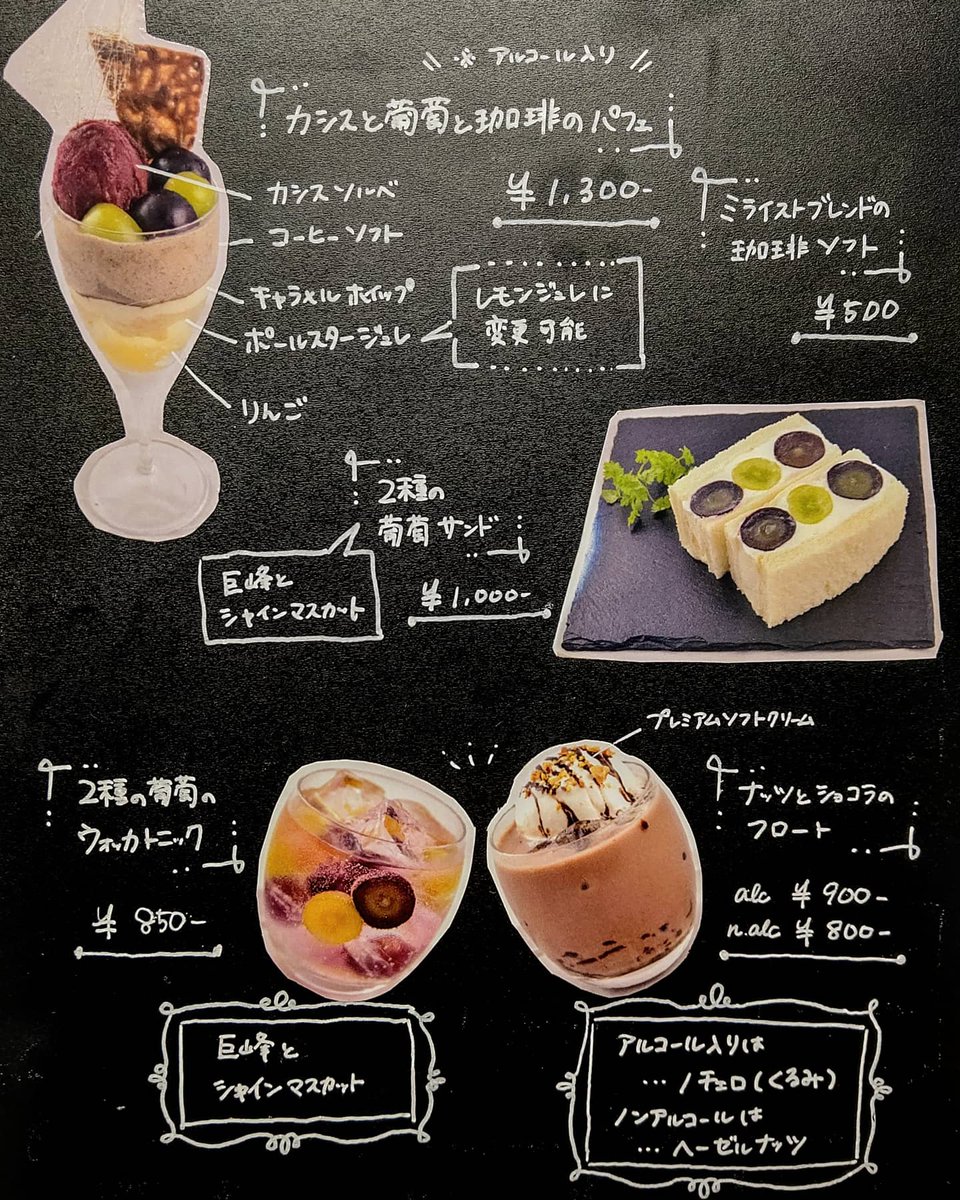 ※ アルコール入り
カシスと葡萄と珈琲のパフェ
¥1,300-
カシスソルベ
コーヒーソフト
キャラメルホイップ
ポールスタージュレ
りんご
レモンジュレに
変更可能
ミライストブレンドの
珈琲ソフト
¥500
2種の
葡萄サンド
¥1,000-
巨峰と
シャインマスカット
2種の葡萄の
ウォッカトニック
¥850-
巨峰と
シャインマスカット
プレミアムソフトクリーム
ナッツとショコラの
フロート
alc ¥900-
n.alc ¥800-
アルコール入りは
…ノチェロ(くるみ)
ノンアルコールは
…ヘーゼルナッツ